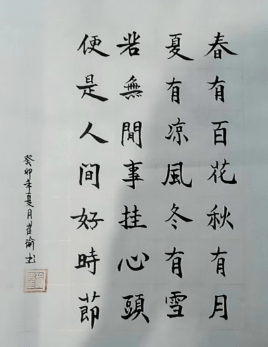 春有百花秋有月
夏有凉風冬有雪
若無閒事挂心頭
便是人间好時節
癸卯年夏月